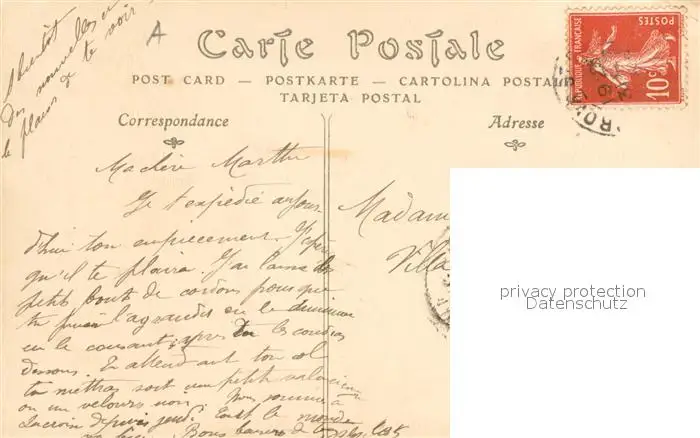 A bientôt
Des nouvelles et
le plaisir de te voir
A
Carte Postale
POST CARD — POSTKARTE — CARTOLINA POSTALE
TARJETA POSTAL
Correspondance
Adresse
REPUBLIQUE FRANÇAISE
POSTES
10c
Ma chère Marthe
Je t'expédie aujour-
d'hui ton empiecement. J'espère
qu'il te plaira. J'ai laissé des
petits bouts de cordons pour que
tu puisses l'agrandir ou le diminuer
en le cousant après les cordons
dessous. En attendant ton col
tu mettras soit un petit valencienne
ou un velours noir. Nous sommes à
depuis jeudi. Tout le monde
Bons baisers de
Madam
Villa
privacy protection
Datenschutz